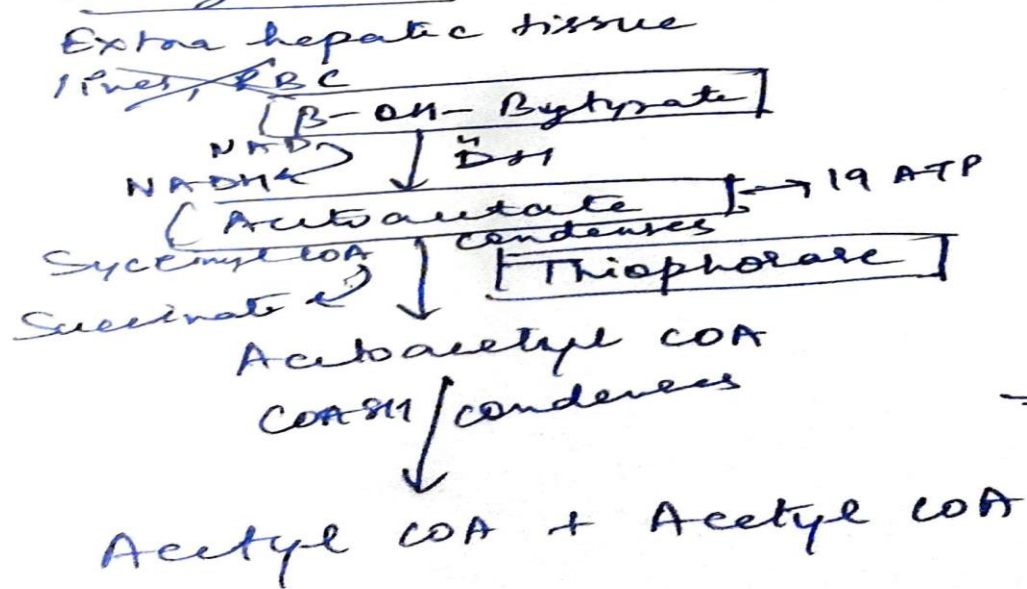 Extra hepatic tissue
liver, RBC
β-OH-Bytyrate
NAD
" DH
NADH
Acetoacetate → 19 ATP
condenses
Syccinyl COA
Thiophorase
Succinate
Acetoacetyl COA
COASH condenses
Acetyl COA + Acetyl COA